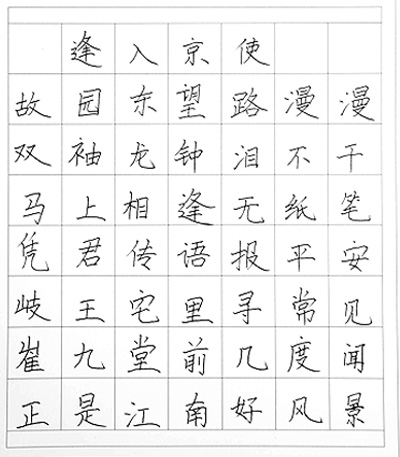 逢入京使
故园东望路漫漫
双袖龙钟泪不干
马上相逢无纸笔
凭君传语报平安
岐王宅里寻常见
崔九堂前几度闻
正是江南好风景